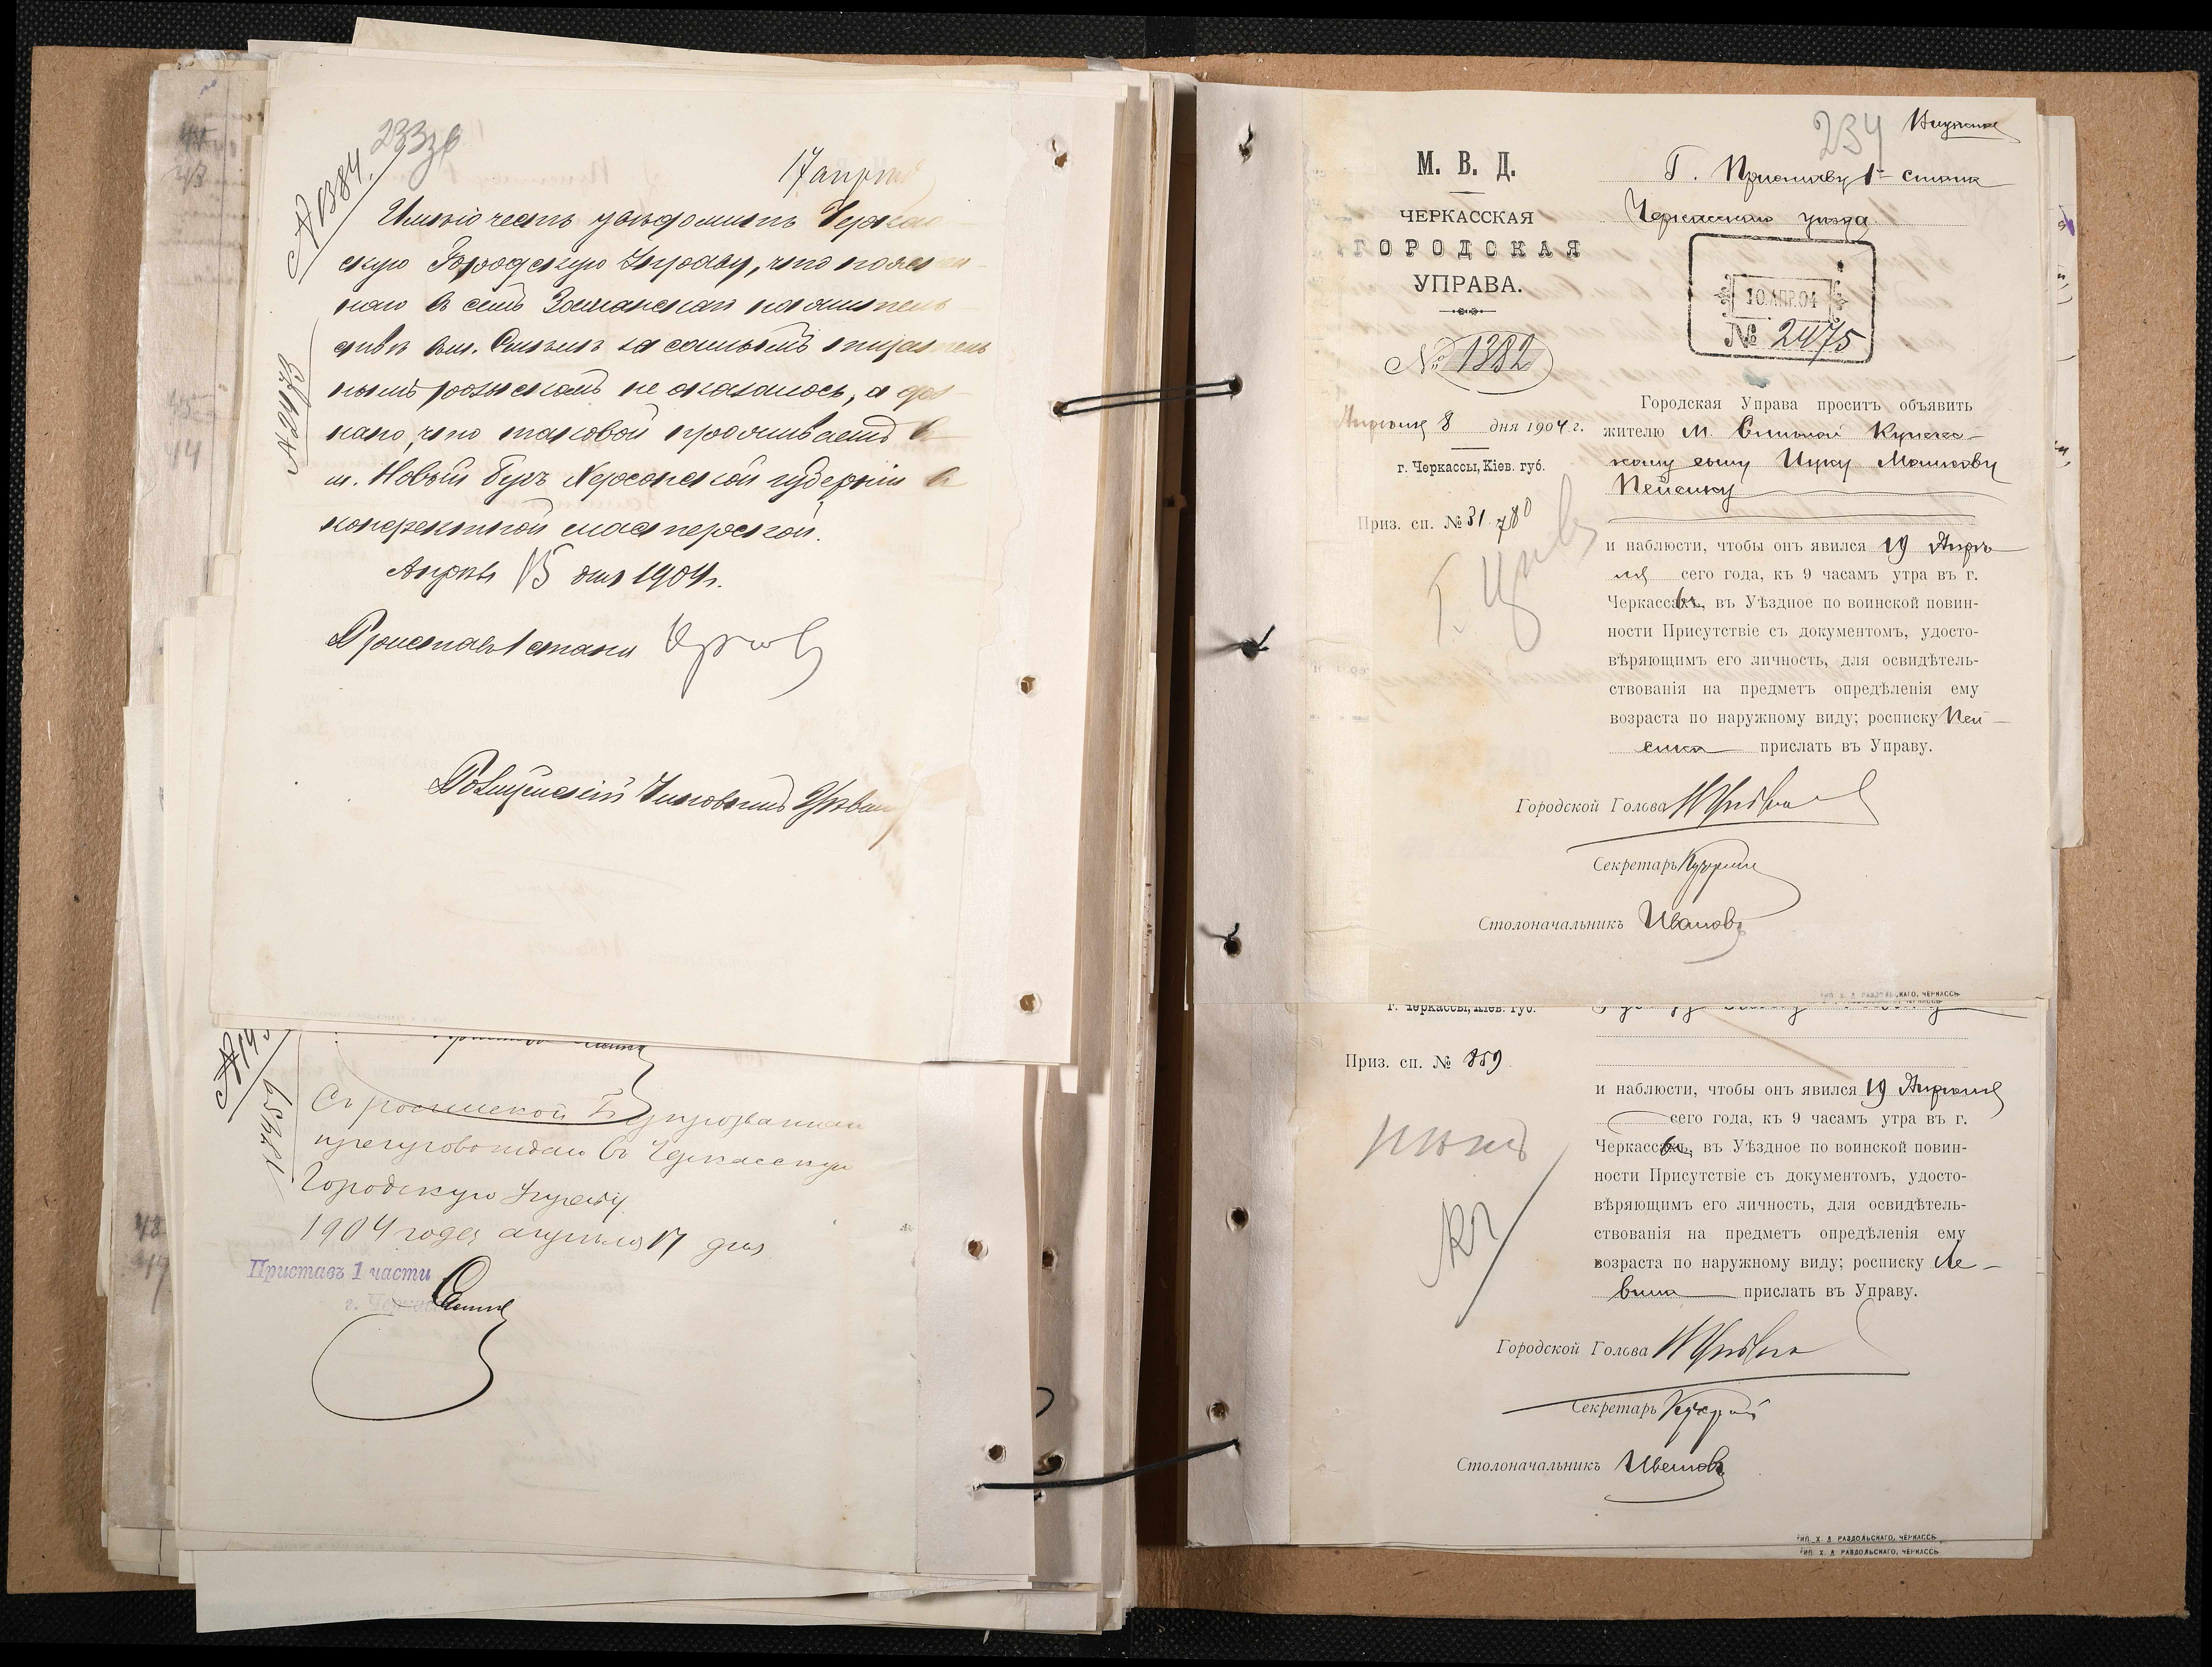 233 об
17 апрѣля
№ 1384.
№ 2473
Имѣю честь увѣдомить Черкас
скую Городскую Управу, что поясен-
наго въ семъ
вѣ въ м. Смѣлѣ за самымъ тщатель
нымъ розыскомъ не оказалось, а доз-
нано, что таковой проживаетъ въ
м. Новый Бугъ Херсонской губерніи въ
конфектной мастерской.
Апрѣля 15 дня 1904 г.
Приставъ 1 стана
Полицейскій Чиновникъ
Съ роспиской
препровождаю въ Черкасскую
Городскую Управу
1904 года апрѣля 17 дня
Приставъ 1 части
г. Черкас
234
М. В. Д.
ЧЕРКАССКАЯ
ГОРОДСКАЯ
УПРАВА.
№ 1382
Апрѣля 8 дня 1904 г.
г. Черкассы, Кіев. губ.
Приз. сп. № 31 780
Г. Приставу 1 стана
Черкасскаго уѣзда.
10 АПР. 04
№ 2475
Городская Управа проситъ объявить
жителю м. Смѣлой Купечес-
кому сыну Ицку Мошкову
Пейсику
и наблюсти, чтобы онъ явился 19 Апрѣ
ля сего года, къ 9 часамъ утра въ г.
Черкассахъ, въ Уѣздное по воинской повин-
ности Присутствіе съ документомъ, удосто-
вѣряющимъ его личность, для освидѣтель-
ствованія на предметъ опредѣленія ему
возраста по наружному виду; росписку Пей-
сика прислать въ Управу.
Городской Голова
Секретарь
Столоначальникъ Ивановъ
ТИП. Х. Д. РАЗДОЛЬСКАГО, ЧЕРКАССЫ
г. Черкассы, Кіев. губ.
Приз. сп. № 859
и наблюсти, чтобы онъ явился 19 Апрѣля
сего года, къ 9 часамъ утра въ г.
Черкассахъ, въ Уѣздное по воинской повин-
ности Присутствіе съ документомъ, удосто-
вѣряющимъ его личность, для освидѣтель-
ствованія на предметъ опредѣленія ему
возраста по наружному виду; росписку Ле-
вина прислать въ Управу.
Городской Голова
Секретарь
Столоначальникъ Ивановъ
ТИП. Х. Д. РАЗДОЛЬСКАГО, ЧЕРКАССЫ
ТИП. Х. Д. РАЗДОЛЬСКАГО, ЧЕРКАССЫ